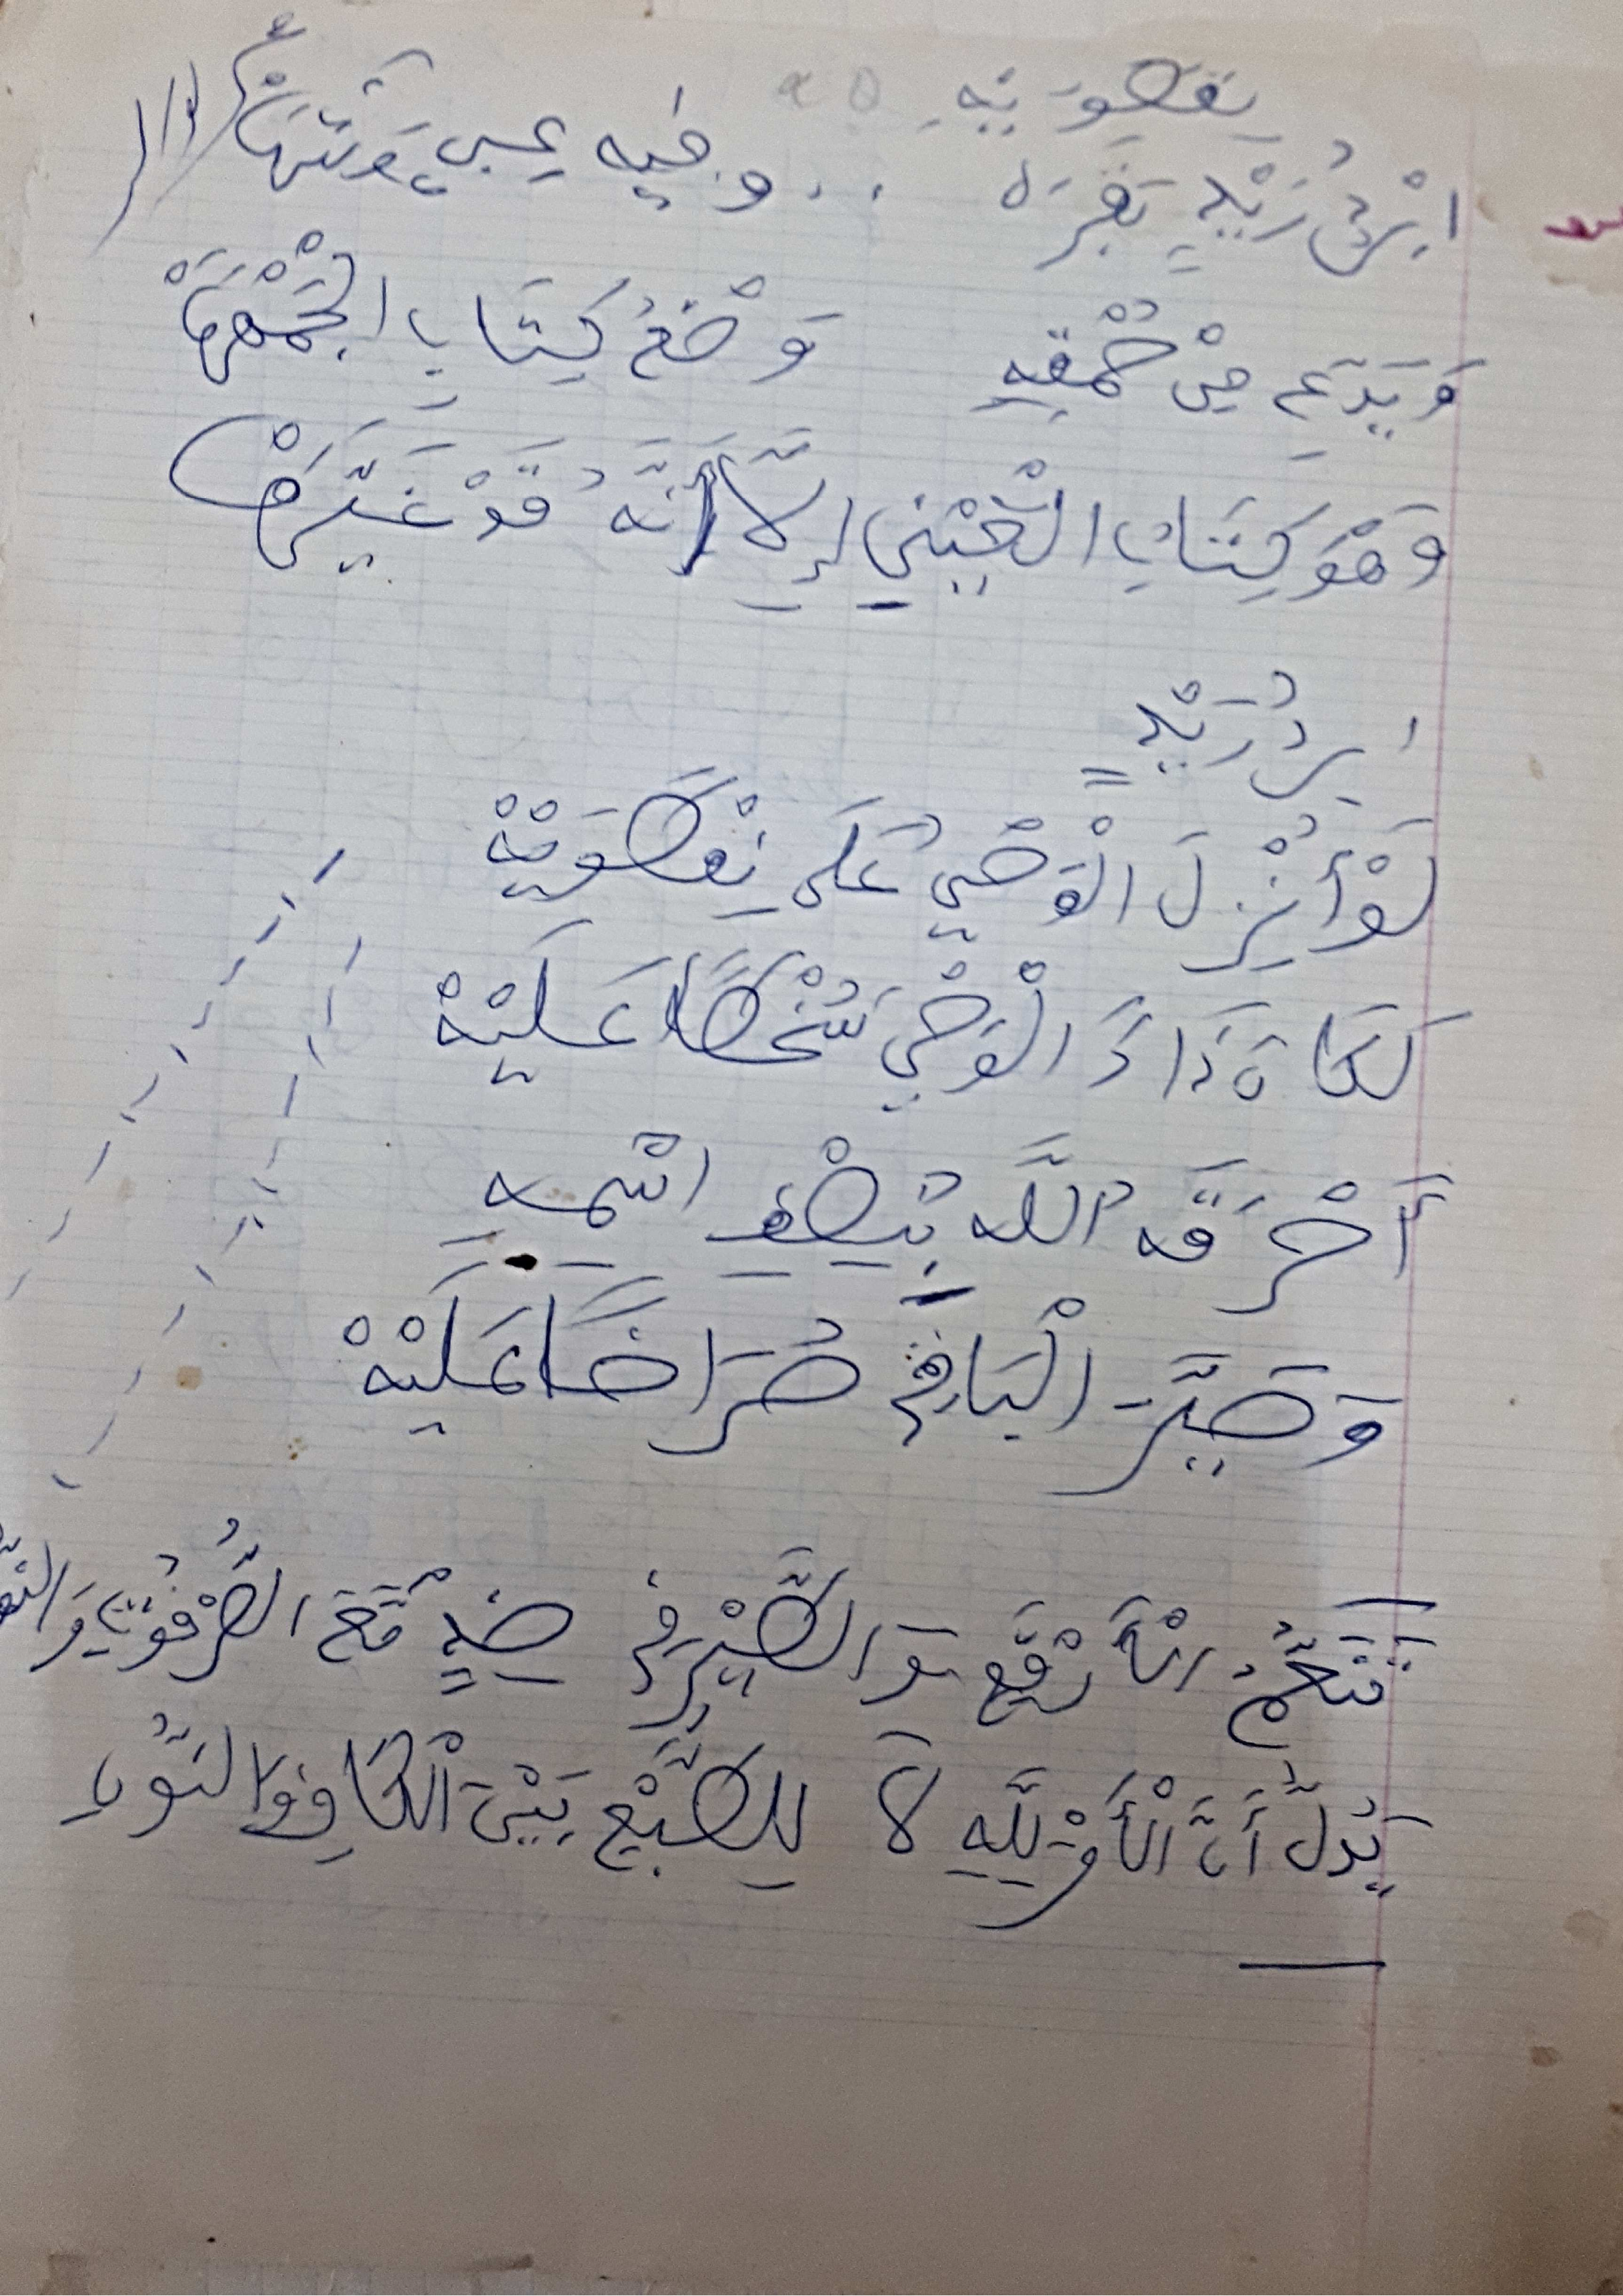 نفطويه
ابْنُ دُرَيْدٍ بَقَرَه .. وفيه عِيٌّ وَشَرَهْ
وَيَدَّعِي مِنْ حُمْقِهِ وَضْعَ كِتَابِ الْجَمْهَرَهْ
وَهْوَ كِتَابُ الْعَيْنِ إِلَّا أَنَّهُ قَدْ غَيَّرَهْ
ابن دُرَيْدٍ
لَوْ أُنْزِلَ الْوَحْيُ عَلَى نِفْطَوَيْهْ
لَكَانَ ذَاكَ الْوَحْيُ سُخْطًا عَلَيْهْ
أَحْرَقَهُ اللَّه بِنِصْفِ اسْمِهِ
وَصَيَّرَ الْبَاقِي صُرَاخًا عَلَيْهْ
تَنَعُّمُ الطَّيْرِ فِي مَعَ
يَدُلُّ أَنَّ الْأَمْرَ لِلَّهِ لَا لِلطَّبْعِ بَيْنَ الْكَافِ وَالنُّونِ